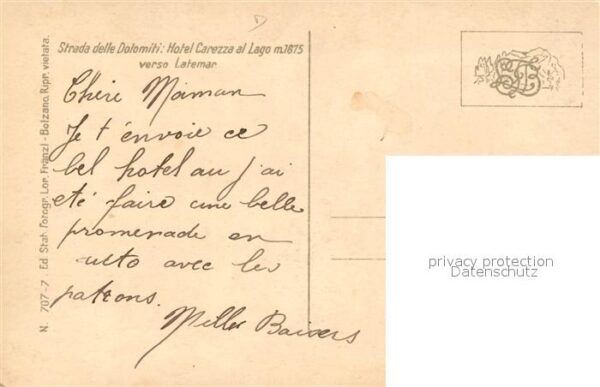 Strada delle Dolomiti: Hotel Carezza al Lago m.1675
verso Latemar
Chère Maman
Je t'envoie ce
bel hotel au j'ai
eté faire une belle
promenade en
auto avec les
patrons.
Milles Baisers
N. 707-7 Ed. Stab. Fotogr. Lor. Fränzl - Bolzano. Ripr. vietata.
privacy protection
Datenschutz